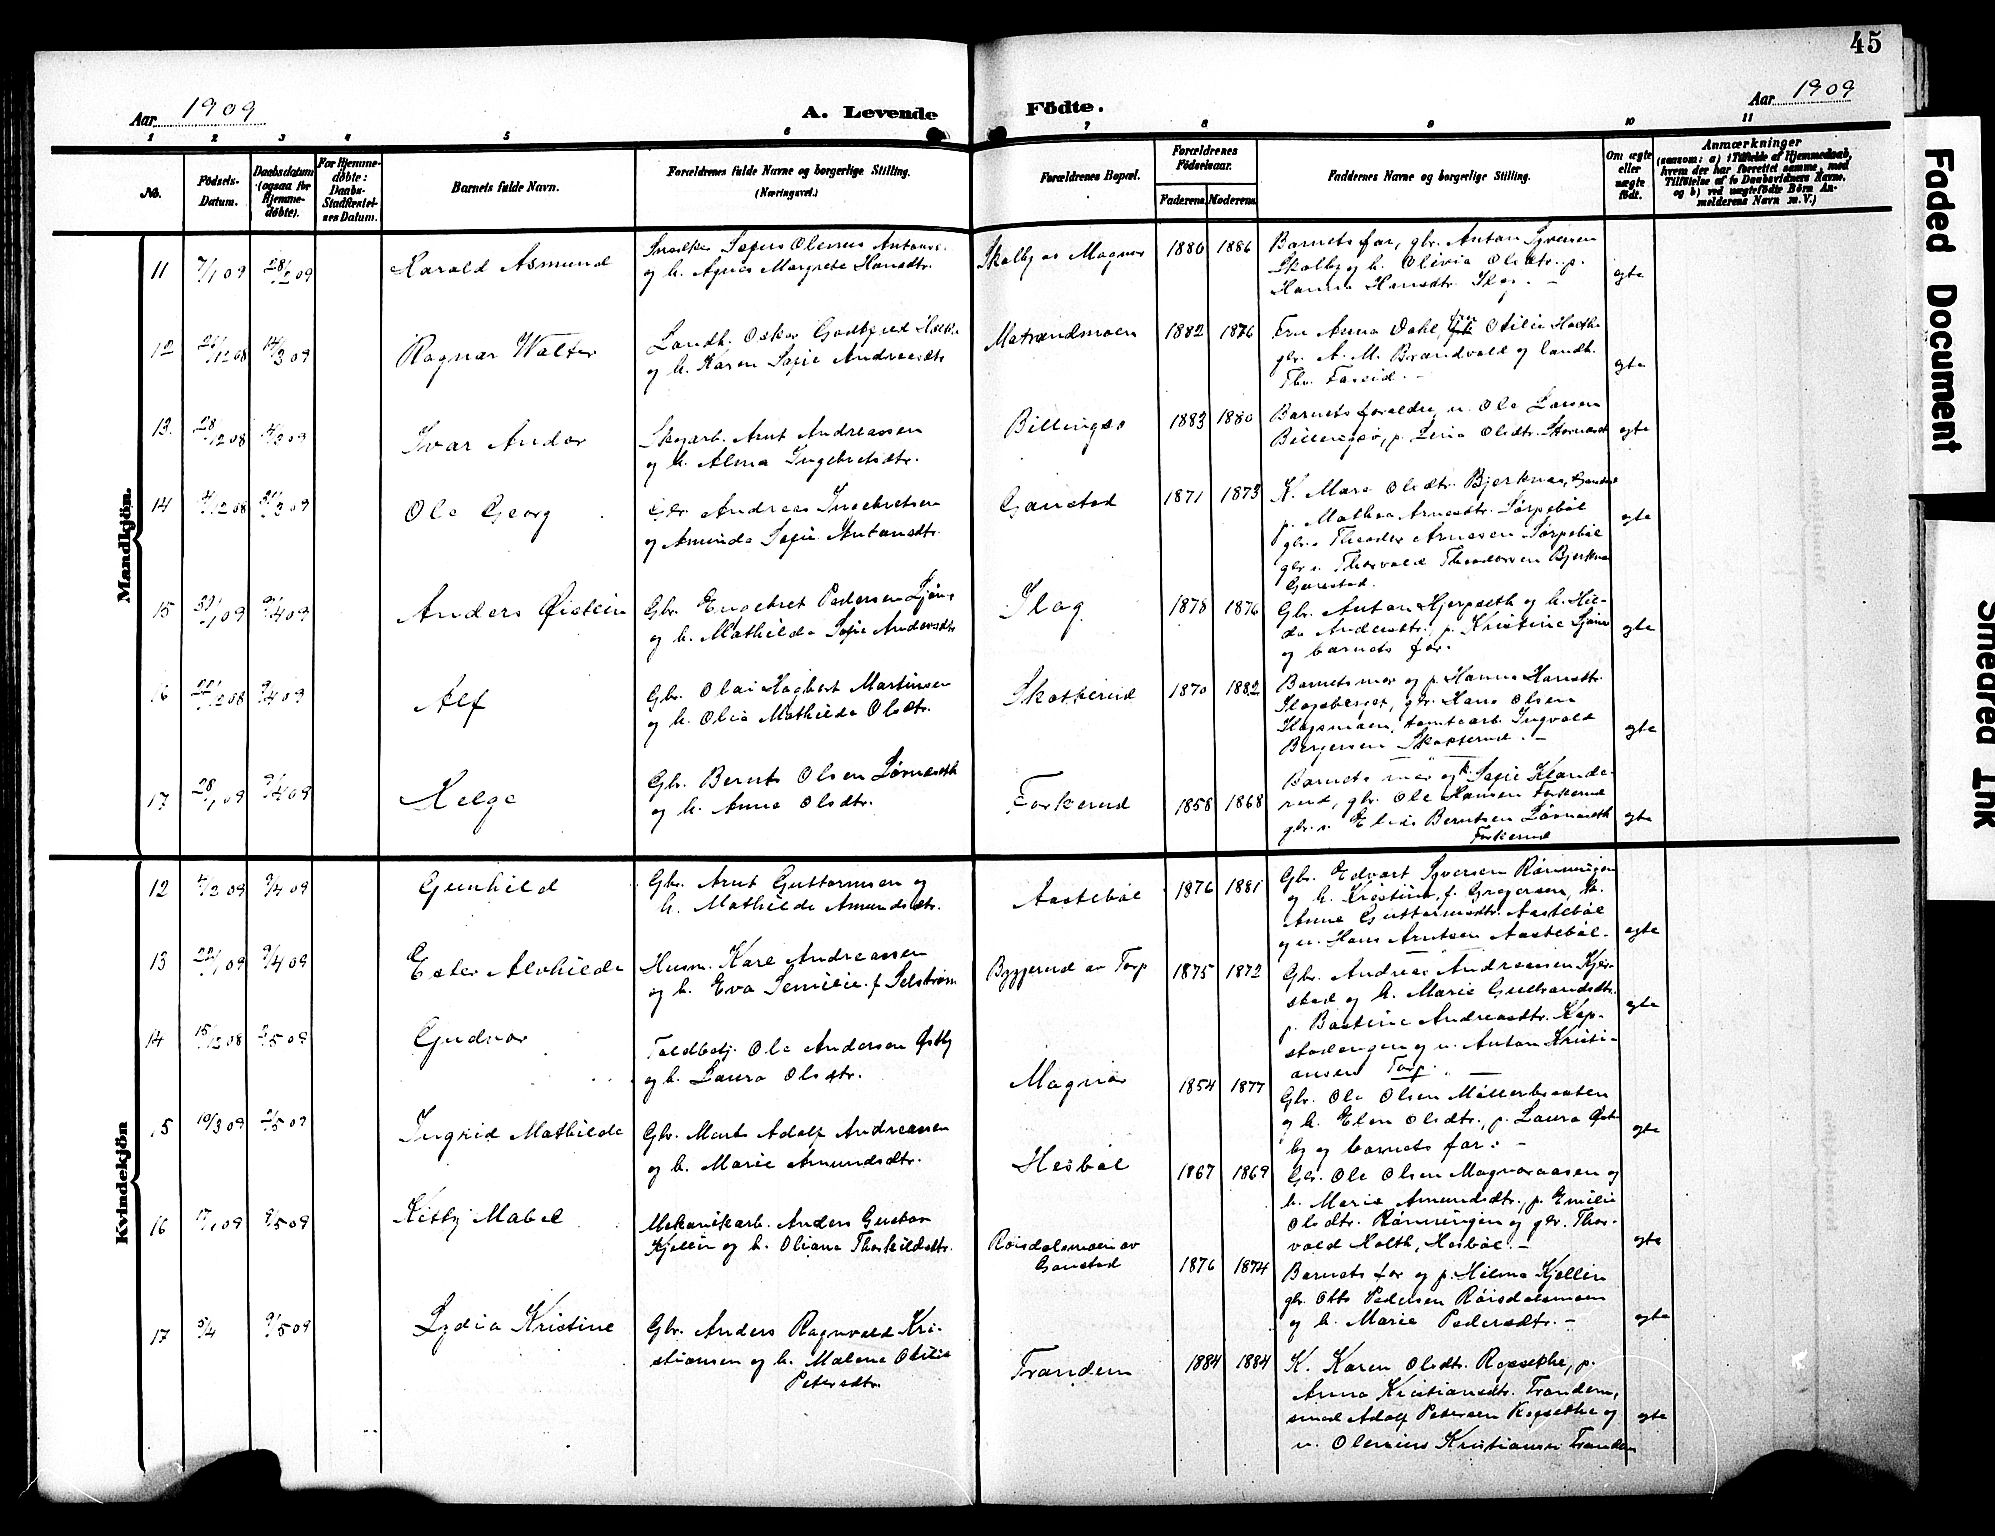 45
Aar 1909
A. Levende
Födte.
Aar 1909
1 2 3 4 5 6 7 8 9 10 11
No.
Födsels-
Datum.
Daabsdatum
(ogsaa for
Hjemme-
døbte).
For Hjemme-
døbte:
Daabs-
Stadfæstel-
ses Datum.
Barnets fulde Navn.
Forældrenes fulde Navne og borgerlige Stilling.
(Næringsvei.)
Forældrenes Bopæl.
Forældrenes
Födselsaar.
Faderens. Moderens.
Faddernes Navne og borgerlige Stilling.
Om ægte
eller
uægte
født.
Anmærkninger
(saasom: a) i Tilfælde af Hjemmedaab,
hvem der har forrettet samme, med
Tilføielse af to Daabsvidners Navne,
og b) ved uægtefødte Börn An-
melderens Navn m. V.)
Mandkjön.
11 7/1 09 28/2 09
Harald Asmund
Olenus Anton
og h. Agnes Margrete Hansdtr.
Skalby as Magnor
1880 1886
Barnets far, gbr. Anton Syversen
Skalby og h. Olivia Olsdtr. p.
Hanna Hansdtr. Skog. -
egte
12 12 08 14/3 09
Ragnar Walter
Landh. Oskar Godtfred Holth
og h. Karen Sofie Andreasdtr.
Matrandmoen
1882 1876
Fru Anna Dahl, fru Otilie Holth
gbr. A. M. Brandvold og landh.
Thv. Farseid. -
egte
13. 28/12 08 3 09
Ivar Andor
Skogarb. Arnt Andreassen
og h. Alma Ingebretsdtr.
Billingsø
1883 1880
Barnets foreldre, u. Ole Larsen
Billingsø, p. Lina Olsdtr.
egte
14 12 08 3 09
Ole Georg
Gbr. Andreas Ingebretsen
og Aminda Sofie Antonsdtr.
Ganstad
1871 1873
K. Mare Olsdtr. Bjerknes,
p. Mathea Arnesdtr. Sørpebøl
gbr.s Theodor Arnesen Sørpebøl
gbr.s. Thorvald Theodorsen Bjerknes
Ganstad.
egte
15 1 09 4 09
Anders Øistein
Gbr. Engebret Pedersen
og h. Mathilde Sofie Andersdtr.
Slog
1878 1876
Gbr. Anton Hjerpseth og h. Hil-
da Andersdtr., p. Kristine
og barnets far.
egte
16 12 08 4 09
Alf
Gbr. Olai Hagbart Martinsen
og h. Olia Mathilde Olsdtr.
Skotterud
1870 1882
Barnets mor og p. Hanna Hansdtr.
Slogsberget, gbr. Hans Olsen
Slogsmoen, tomtearb. Ingvald
Bergersen Skotterud. -
egte
17 28/1 09 4 09
Helge
Gbr. Bernts Olsen Lørnseth
og h. Anna Olsdtr.
Forkerud
1858 1868
Barnets mor og k. Sofie Klande-
rud, gbr. Ole Hansen Forkerud
gbr.s. Elias Berntsen Lørnseth
Forkerud
egte
Kvindekjön
12 2 09 4 09
Gunhild
Gbr. Arnt Guttormsen og
h. Mathilde Amundsdtr.
Aastebøl
1876 1881
Gbr. Edvart Syversen Rønningen
og h. Kristine, f. Gregersen, k.
Anne Guttormsdtr. Aastebøl
og u. Hans Arntsen Aastebøl.
egte
13 1 09 4 09
Ester Alvhilde
Husm. Karl Andreassen
og h. Eva Semilie f. Selstrøm
Byggerud av Torp
1875 1872
Gbr. Andreas Andreassen Kjer-
stad og h. Marie Gulbrandsdtr.
p. Bastine Andreasdtr. Kop-
stadengen og u. Anton Kristi-
ansen Torp. -
egte
14 15/12 08 5 09
Gudvor
Toldbetj. Ole Andersen Østby
og h. Laura Olsdtr.
Magnor
1854 1877
Gbr. Ole Olsen Møllerbraaten
og h. Elen Olsdtr., p. Laura Øst-
by og barnets far. -
egte
15 10/3 09 5 09
Ingrid Mathilde
Gbr. Martin Adolf Andreassen
og h. Marie Amundsdtr.
Hesbøl
1867 1869
Gbr. Ole Olsen Magnoraasen og
h. Marie Amundsdtr., p. Emilie
Olsdtr. Rønningen og gbr. Thor-
vald Holth, Hesbøl. -
egte
16 17/1 09 9/5 09
Kitty Mabel
Mekanikarb. Anders Gustav
Kjellin og h. Oliana Thorkildsdtr.
Røisdalsmoen av
Ganstad
1876 1874
Barnets far og p. Hilma Kjellin
gbr. Otto Pedersen Røisdalsmoen
og h. Marie Pedersdtr. -
egte
17 5/4 9/5 09
Lydia Kristine
Gbr. Anders Ragnvald Kri-
stiansen og h. Malene Otilie
Petersdtr.
Trandem
1884 1884
K. Karen Olsdtr. Rogsethe, p.
Anna Kristiansdtr. Trandem,
smed Adolf Petersen Rogsethe og
u. Olenius Kristiansen Trandem
egte
Faded Document
Smeared Ink